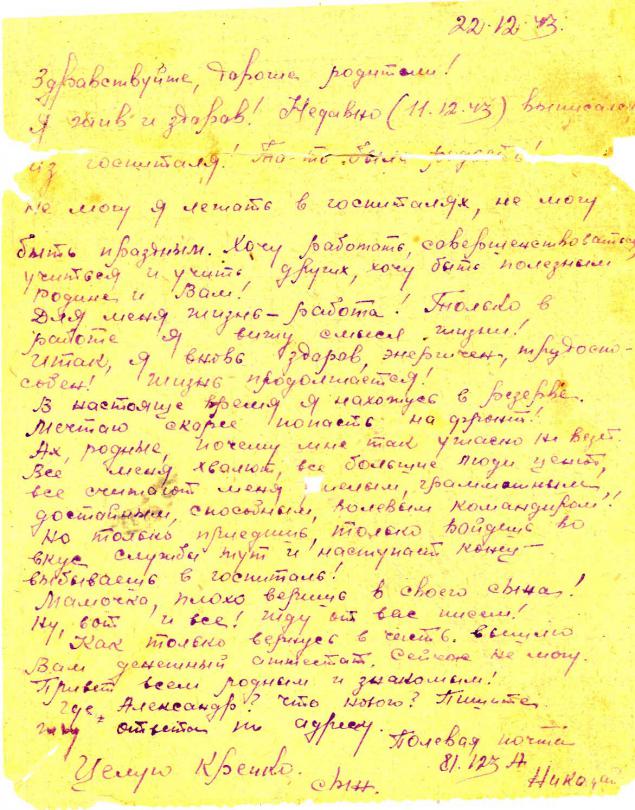 22.12.43.
Здравствуйте, дарогие родители!
Я жив и здрав! Недавно (11.12.43) выписался
из госпиталя! То-то была радость!
не могу я лежать в госпиталях, не могу
быть праздным. Хочу работать, совершенствоваться,
учиться и учить других, хочу быть полезным
Родине и Вам!
Для меня жизнь – работа! Только в
работе я вижу смысл жизни!
Итак, я вновь здрав, энергичен, трудоспо-
собен! Жизнь продолжается!
В настояще время я нахожусь в резерве.
Мечтаю скорее попасть на фронт!
Ах, родные, почему мне так ужасно не везет.
Все меня хвалют, все большие люди ценят,
все считают меня смелым, грамотным,
достойным, способным, волевым командиром!
Но только придешь, только войдешь во
вкус службы тут и наступает конец –
выбываешь в госпиталь!
Мамочка, плохо веришь в своего сына!
Ну, вот и все! Жду от вас писем!
Как только вернусь в часть вышлю
Вам денежный аттестат. Сейчас не могу.
Привет всем родным и знакомым!
Где Александр? Что нового? Пишите
жду ответа по адресу.
Полевая почта
81.123 А
Целую Крепко.
сын.
Николай